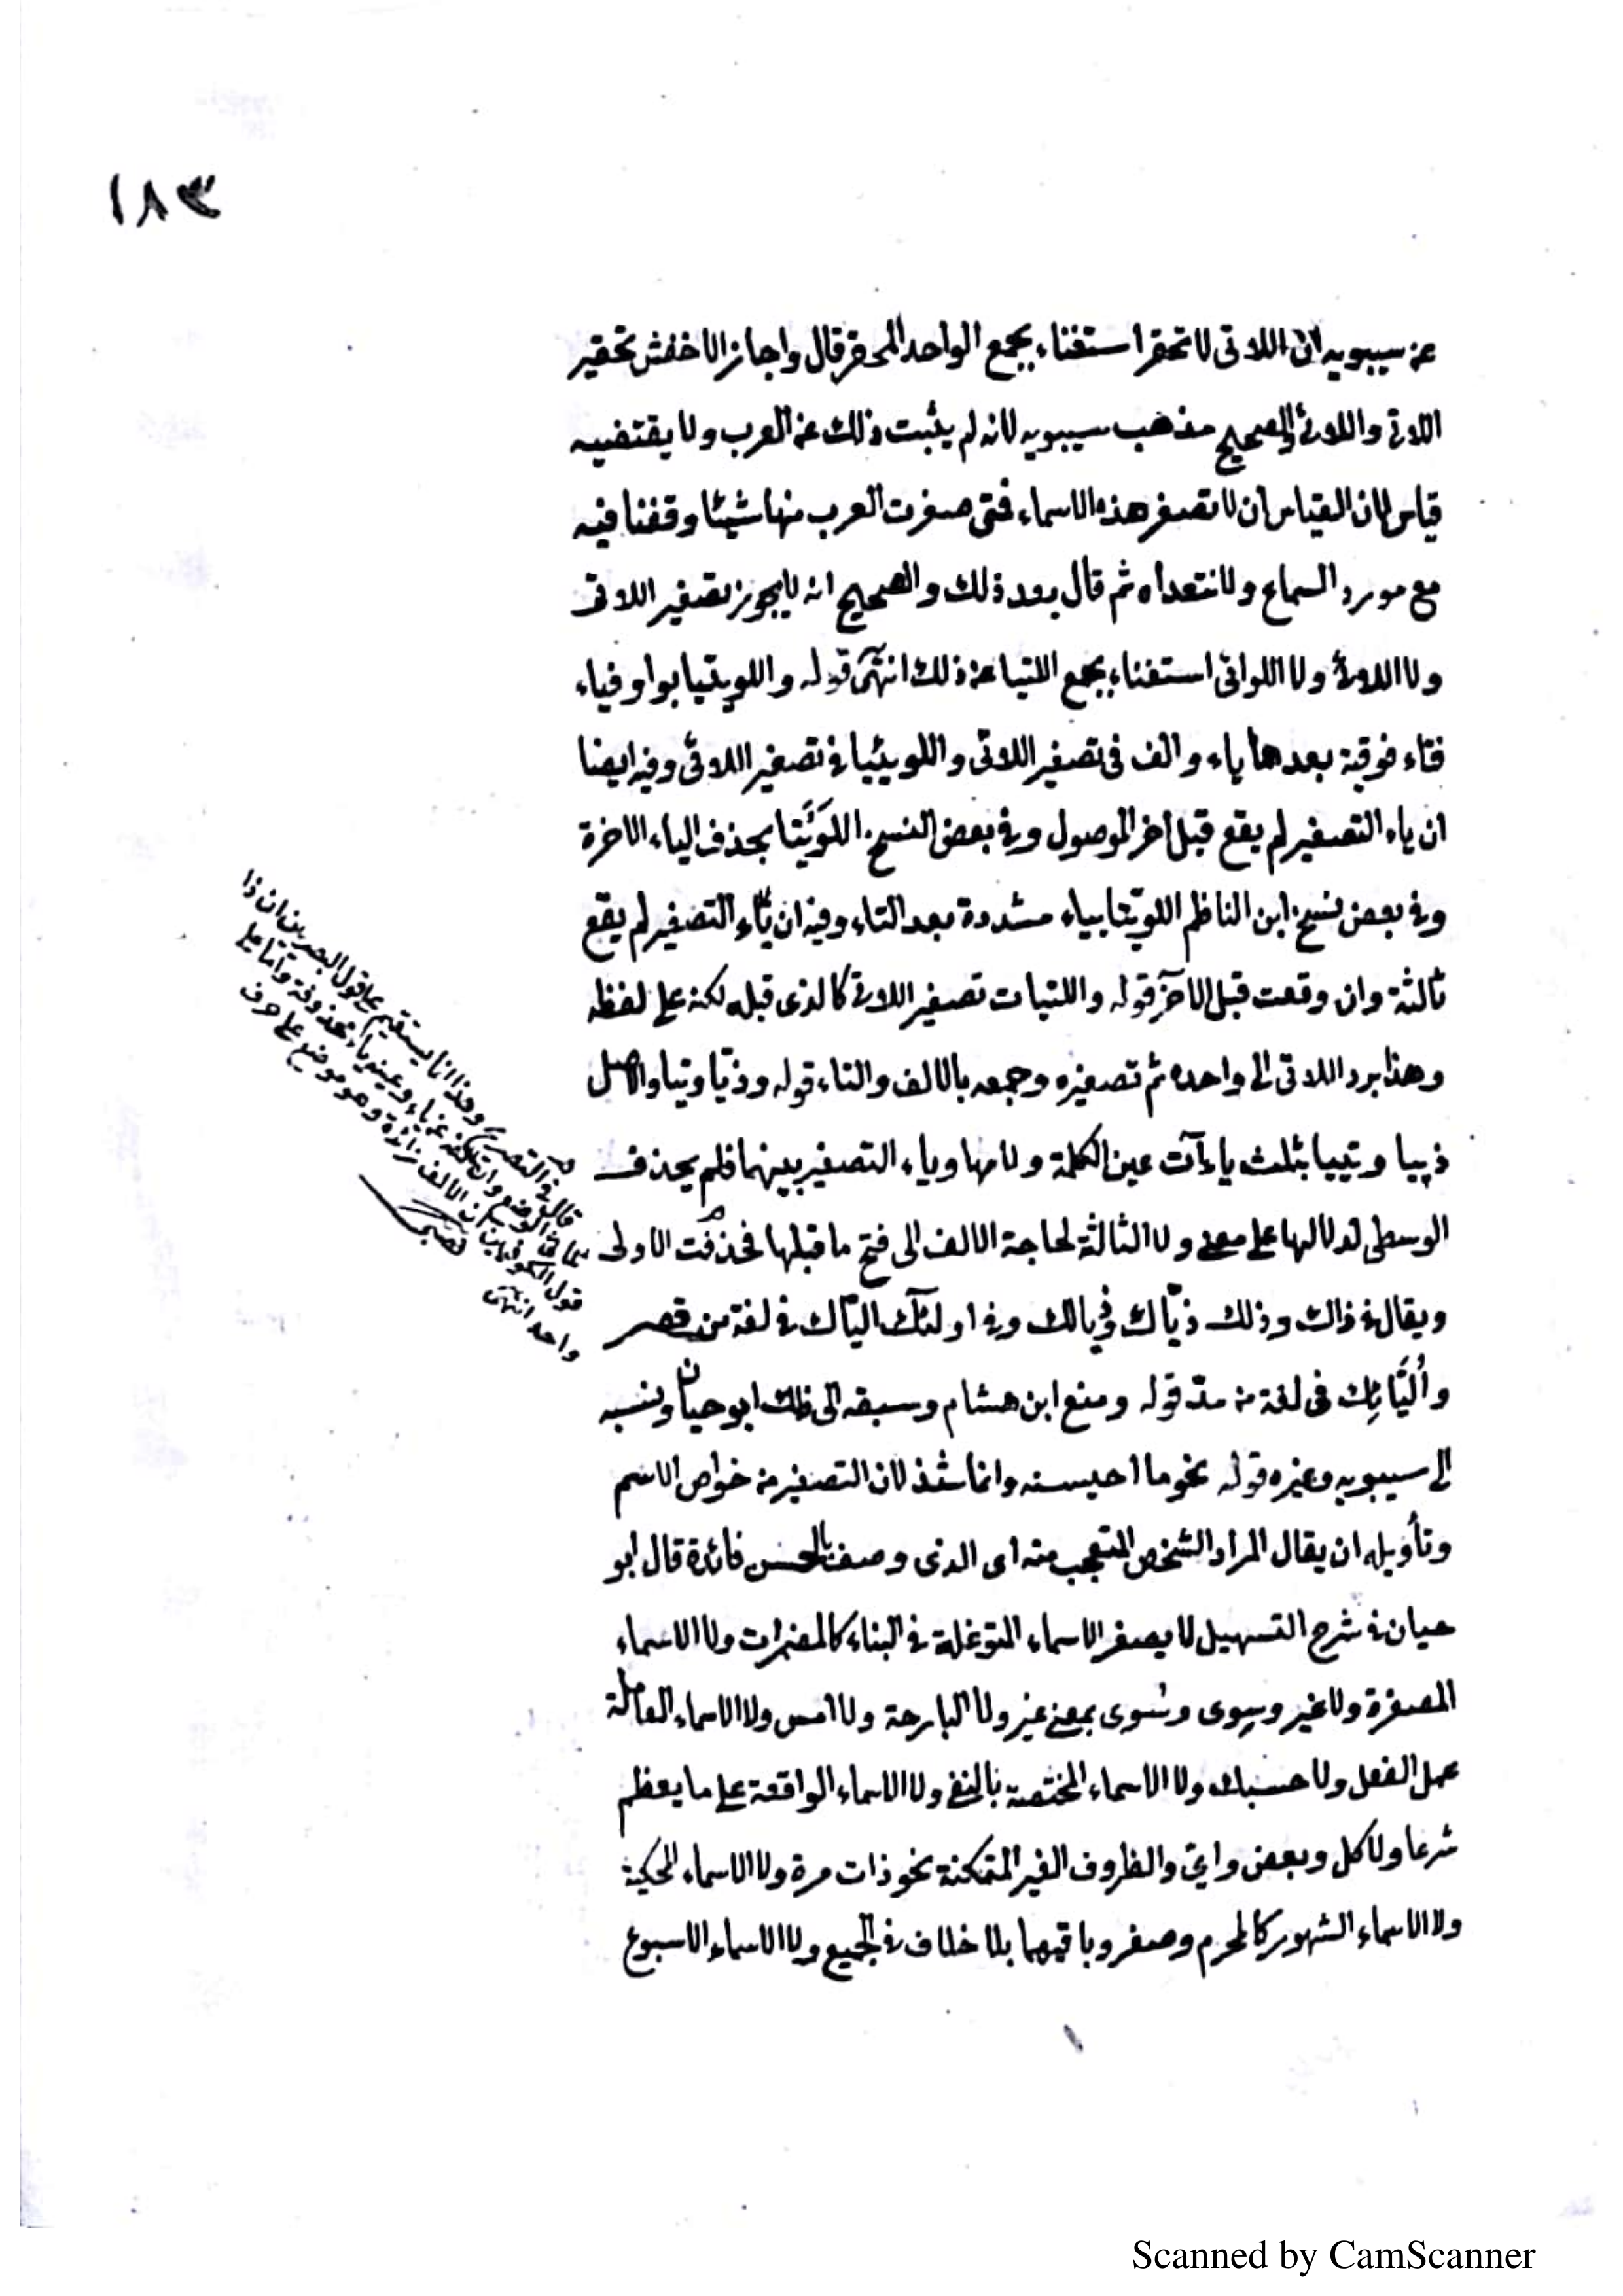 ١٨٣
عن سيبويه ان اللاتى لا تحقر استغناء بجمع الواحد المحقر قال واجاز الاخفش تحقير
اللاتى واللائى والصحيح مذهب سيبويه لانه لم يثبت ذلك عن العرب ولا يقتضيه
قياس لان القياس ان لا تصغر هذه الاسماء فمتى صغرت العرب منها شيئا وقفنا فيه
مع مورد السماع ولا نتعداه ثم قال بعد ذلك والصحيح انه لا يجوز تصغير اللاتى
ولا اللائى ولا اللواتى استغناء بجمع اللتيا عن ذلك انتهى قوله واللويتيا بواو فياء
فتاء فوقية بعدها ياء والف فى تصغير اللاتى واللويئيا فى تصغير اللائى وفيه ايضا
ان ياء التصغير لم يقع قبل اخر الموصول وفى بعض النسخ اللوَيْتَا بحذف الياء الاخرة
وفى بعض نسخ ابن الناظم اللويتيا بياء مشددة بعد التاء وفيه ان ياء التصغير لم يقع
ثالثة وان وقعت قبل الآخر قوله واللتيات تصغير اللاتى كالذى قبله لكنه على لفظه
وهذا برد اللاتى الى واحده ثم تصغيره وجمعه بالالف والتاء قوله وذيّا وتيا والاصل
ذييا وتييا بثلث ياءآت عين الكلمة ولامها وياء التصغير بينهما فلم يحذف
الوسطى لدلالها على معنى ولا الثالثة لحاجة الالف الى فتح ما قبلها فحذفت الاولى
ويقال فى ذاك وذلك ذيّاك وذيالك وفى اولئك اليّاك فى لغة من قصر
وأُليَّائِك فى لغة من مدّ قوله ومنع ابن هشام وسبقه الى ذلك ابو حيان ونسبه
الى سيبويه وغيره قوله نحو ما احيسنه وانما شذ لان التصغير من خواص الاسم
وتأويله ان يقال المراد الشخص المتعجب منه اى الذى وصف بالحسن فائدة قال ابو
حيان فى شرح التسهيل لا يصغر الاسماء المتوغلة فى البناء كالمضمرات ولا الاسماء
المصغرة ولا غير وسِوى وسُوى بمعنى غير ولا البارحة ولا امس ولا الاسماء العاملة
عمل الفعل ولا حسبك ولا الاسماء المختصة بالنفى ولا الاسماء الواقعة على ما يعظم
شرعا ولا كل وبعض واىّ والظروف الغير المتمكنة نحو ذات مرة ولا الاسماء المحكية
ولا الاسماء الشهور كالمحرم وصفر وباقيهما بلا خلاف فى الجميع ولا الاسماء الاسبوع
قال فى التصريح وهذا انما يستقيم على قول البصريين ان ذا
ثلاثى الوضع وان الفه عن ياء وعينه ياء محذوفة واما على
قول الكوفيين ان الالف زائدة وهو موضوع على حرف
واحد انتهى
Scanned by CamScanner